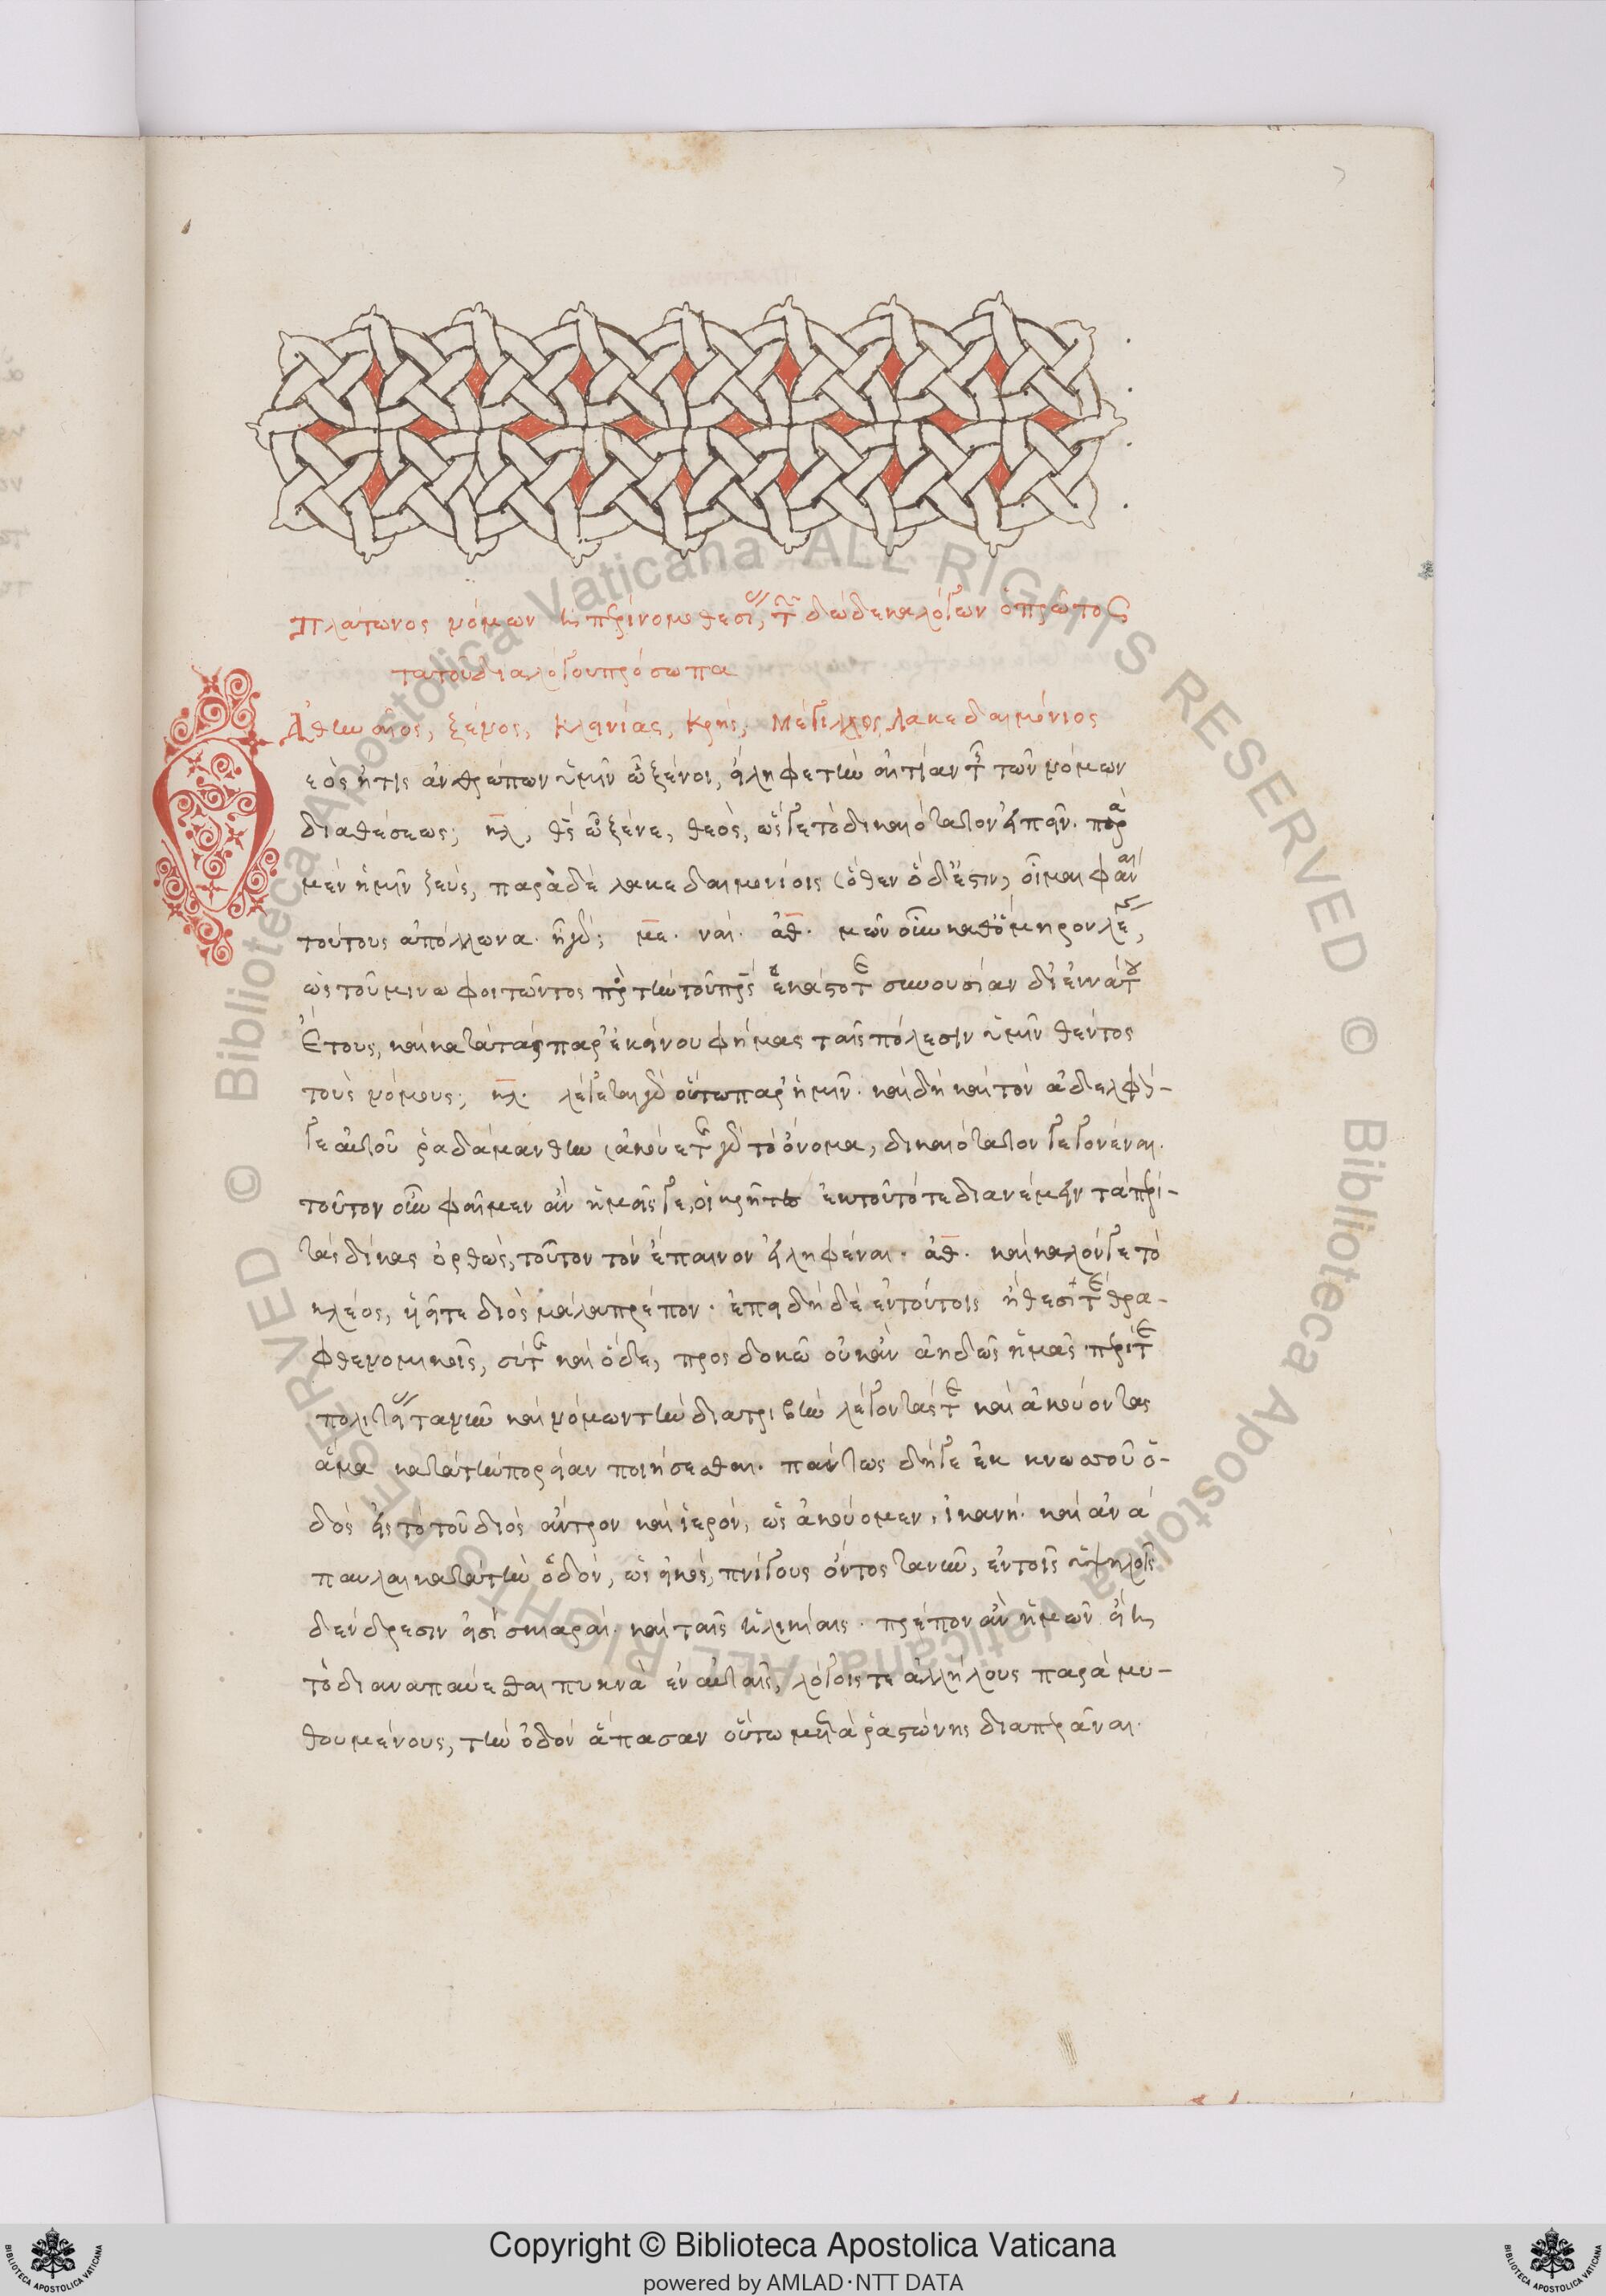 Πλάτωνος νόμων ἢ περὶ νομοθεσίας, τῶν δώδεκα λόγων ὁ πρῶτος
τὰ τοῦ διαλόγου πρόσωπα
Ἀθηναῖος, ξένος, Κλεινίας, Κρής, Μέγιλλος, Λακεδαιμόνιος
Θεὸς ἤ τις ἀνθρώπων ὑμῖν ὦ ξένοι, εἴληφε τὴν αἰτίαν τῆς τῶν νόμων
διαθέσεως; κλ, θς ὦ ξένε, θεός, ὥς γε τὸ δικαιότατον εἰπεῖν. παρὰ
μὲν ἡμῖν ζεύς, παρὰ δὲ λακεδαιμονίοις (ὅθεν ὅδ' ἔστιν) οἶμαι φάναι
τούτους ἀπόλλωνα. ἦ γάρ; με. ναί. ἀθ. μῶν οὖν καθ' ὅμηρον λέγεις,
ὡς τοῦ μίνω φοιτῶντος πρὸς τὴν τοῦ πρς ἑκάστοτε συνουσίαν δι' ἐννάτου
ἔτους, καὶ κατὰ τὰς παρ' ἐκείνου φήμας ταῖς πόλεσιν ὑμῖν θέντος
τοὺς νόμους; κλ. λέγεται γὰρ οὕτω παρ' ἡμῖν. καὶ δὴ καὶ τὸν ἀδελφόν-
γε αὐτοῦ ῥαδάμανθυν (ἀκούετε γὰρ τὸ ὄνομα, δικαιότατον γεγονέναι.
τοῦτον οὖν φαῖμεν ἂν ἡμεῖς γε, οἱ κρῆτες ἐκ τοῦ τότε διανέμειν τὰ περὶ-
τὰς δίκας ὀρθῶς, τοῦτον τὸν ἔπαινον εἰληφέναι. ἀθ. καὶ καλόν γε τὸ
κλέος, ὑεῖ τε διὸς μάλα πρέπον. ἐπειδὴ δὲ ἐν τούτοις ἤθεσί τε θρα-
φθε νομικοῖς, σύ τε καὶ ὅδε, προσδοκῶ οὐκ ἂν ἀηδῶς ἡμᾶς περί τε
πολιτείας τανῦν καὶ νόμων τὴν διατριβὴν λέγοντάς τε καὶ ἀκούοντας
ἅμα κατὰ τὴν πορείαν ποιήσεσθαι. πάντως δή γε ἐκ κνωσοῦ ὁ-
δὸς εἰς τὸ τοῦ διὸς ἄντρον καὶ ἱερόν, ὡς ἀκούομεν, ἱκανή. καὶ ἀνά
παυλαι κατὰ τὴν ὁδόν, ὡς εἰκός, πνίγους ὄντος τανῦν, ἐν τοῖς ὑψηλοῖς
δένδρεσίν εἰσι σκιαραί. καὶ ταῖς ἡλικίαις. πρέπον ἂν ἡμῶν εἴη
τὸ διαναπαύεσθαι πυκνὰ ἐν αὐταῖς, λόγοις τε ἀλλήλους παραμυ-
θουμένους, τὴν ὁδὸν ἅπασαν οὕτω μετὰ ῥαστώνης διαπερᾶναι.
Copyright © Biblioteca Apostolica Vaticana
powered by AMLAD·NTT DATA